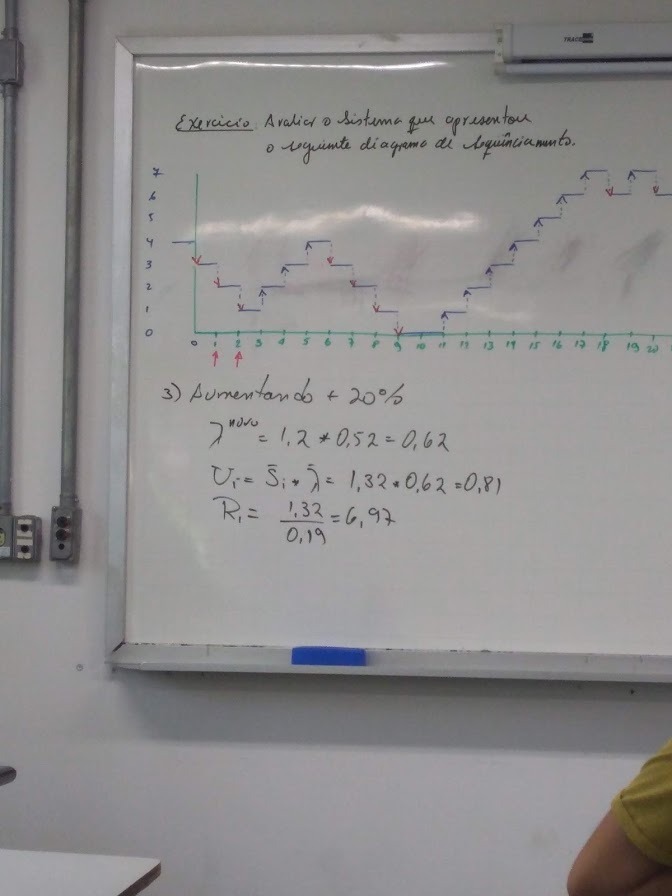 TRACE
Exercício: Avaliar o sistema que apresentou
o seguinte diagrama de sequênciamento.
7
6
5
4
3
2
1
0
0 1 2 3 4 5 6 7 8 9 10 11 12 13 14 15 16 17 18 19 20
3) Aumentando + 20%
λ novo = 1,2 * 0,52 = 0,62
Ui = S̄i * λ̄ = 1,32 * 0,62 = 0,81
Ri = 1,32 / 0,19 = 6,97